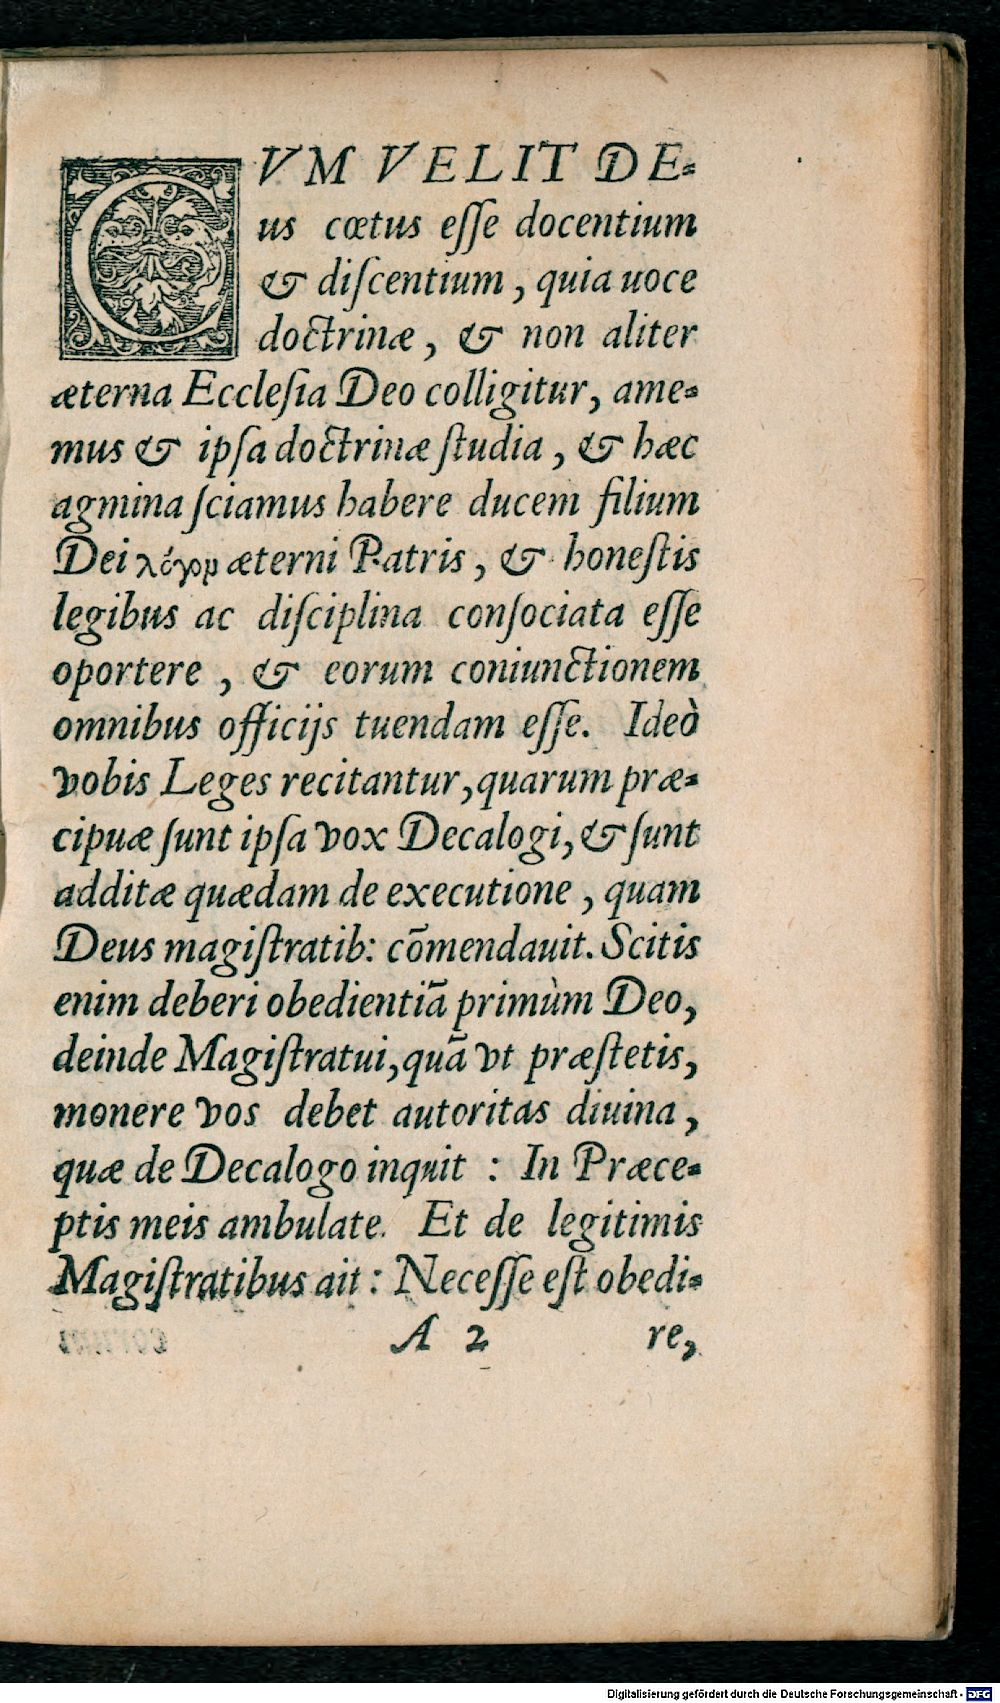 CVM VELIT DE-
us cœtus eſſe docentium
& diſcentium, quia uoce
doctrinæ, & non aliter
æterna Eccleſia Deo colligitur, ame-
mus & ipſa doctrinæ ſtudia, & hæc
agmina ſciamus habere ducem filium
Dei λόγομ æterni Patris, & honeſtis
legibus ac diſciplina conſociata eſſe
oportere, & eorum coniunctionem
omnibus officijs tuendam eſſe. Ideò
vobis Leges recitantur, quarum præ-
cipuæ ſunt ipſa vox Decalogi, & ſunt
additæ quædam de executione, quam
Deus magiſtratib: cōmendauit. Scitis
enim deberi obedientiā primùm Deo,
deinde Magiſtratui, quā vt præſtetis,
monere vos debet autoritas diuina,
quæ de Decalogo inquit : In Præce-
ptis meis ambulate. Et de legitimis
Magiſtratibus ait : Neceſſe eſt obedi-
A 2 re,
Digitalisierung gefördert durch die Deutsche Forschungsgemeinschaft - DFG